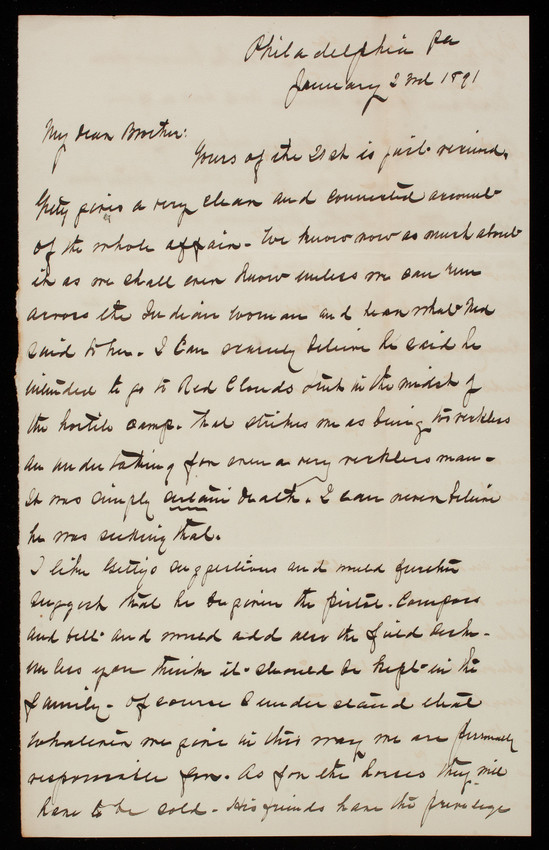 Philadelphia Pa
January 23rd 1891
My dear Brother:
Yours of the 21st is just received.
Getty gives a very clear and connected account
of the whole affair. We know now as much about
it as we shall ever know unless we can run
across the Indian woman and hear what Ned
said to her. I can scarcely believe he said he
intended to go to Red Clouds out in the midst of
the hostile camp. That strikes me as being too reckless
an undertaking for even a very reckless man.
It was simply certain death. I can never believe
he was seeking that.
I like Gettys suggestions and would further
suggest that he be given the pistol. Compass
and belt and would add also the field desk.
unless you think it should be kept in the
family. Of course I understand that
whatever we give in this way we are personally
responsible for. As for the horses they will
have to be sold. His friends have the privilege